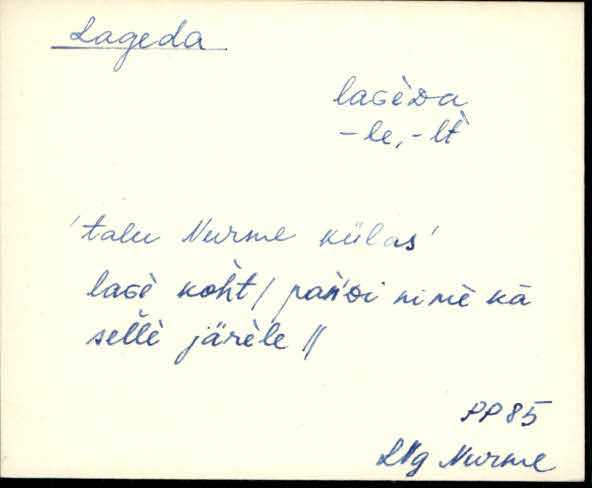 Lageda
lasèda
-le, -lt̀
'talu Nurme külas'
lasè koht / pańdi nimè kà
sellè järèle //
PP85
LNg Nurme